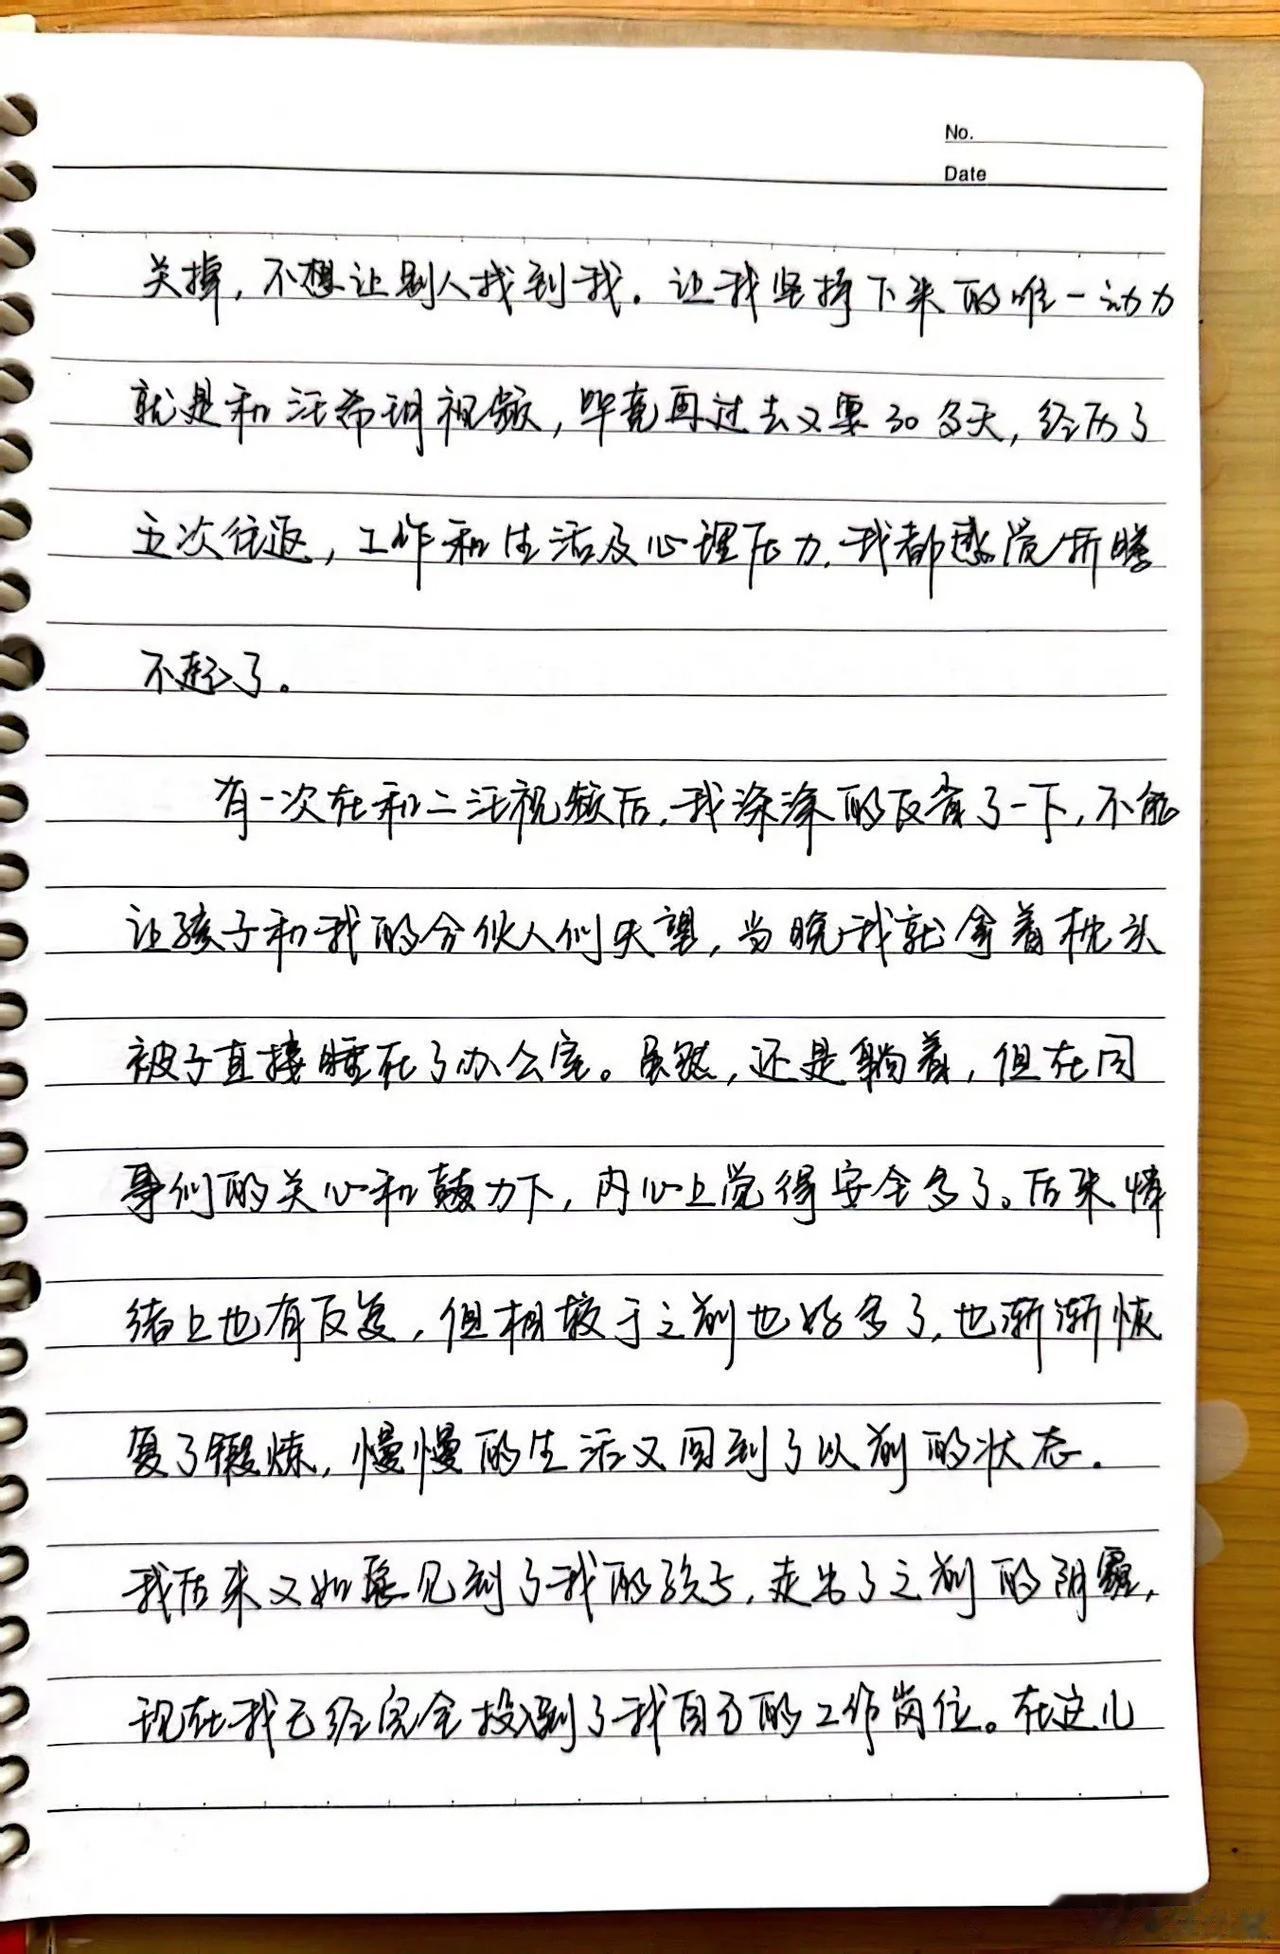 No.
Date
关掉，不想让别人找到我。让我坚持下来的唯一动力
就是和汪希玥视频，毕竟再过去又要30多天，经历了
五次往返，工作和生活及心理压力，我都感觉折腾
不起了。
有一次在和二汪视频后，我深深的反省了一下，不能
让孩子和我的合伙人们失望，当晚我就拿着枕头
被子直接睡在了办公室。虽然，还是躺着，但在同
事们的关心和鼓力下，内心上觉得安全多了。后来情
绪上也有反复，但相较于之前也好多了，也渐渐恢
复了锻炼，慢慢的生活又回到了以前的状态。
我后来又如愿见到了我的孩子，走出了之前的阴霾，
现在我已经完全投入到了我自己的工作岗位。在这儿